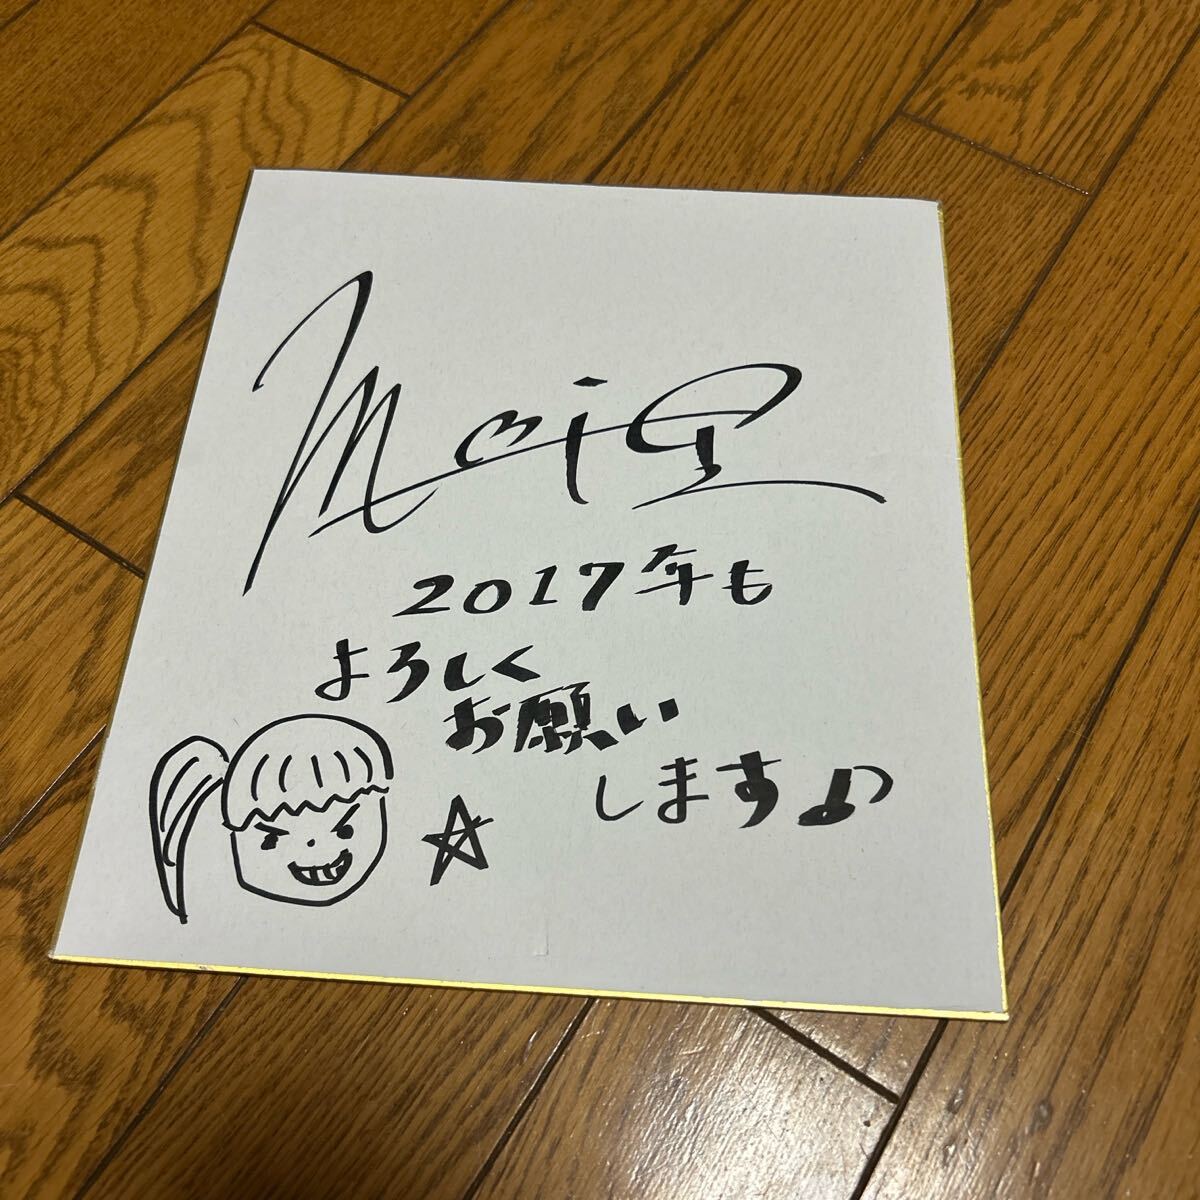 2017年も
よろしく
お願い
します♪